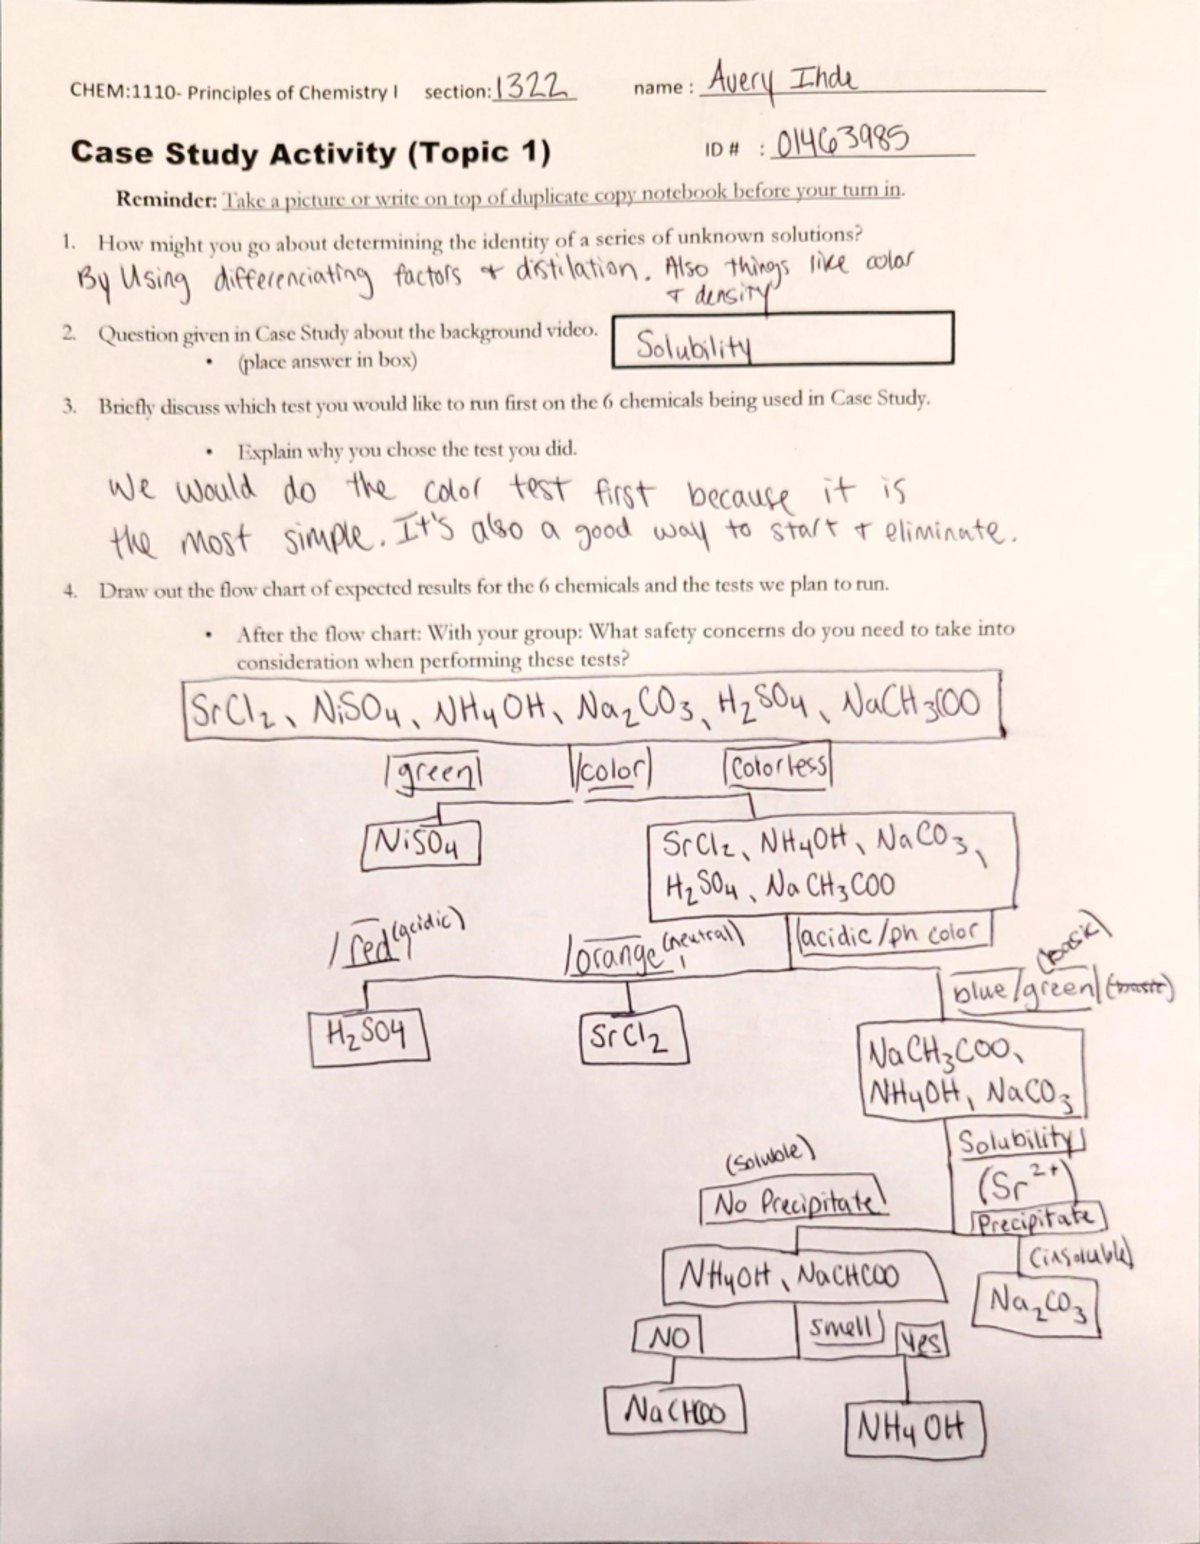 CHEM:1110- Principles of Chemistry I section: 1322 name : Avery Ihde
Case Study Activity (Topic 1) ID # : 01463985
Reminder: Take a picture or write on top of duplicate copy notebook before your turn in.
1. How might you go about determining the identity of a series of unknown solutions?
By Using differenciating factors + distilation. Also things like color
+ density
2. Question given in Case Study about the background video.
• (place answer in box)
Solubility
3. Briefly discuss which test you would like to run first on the 6 chemicals being used in Case Study.
• Explain why you chose the test you did.
We would do the color test first because it is
the most simple. It's also a good way to start + eliminate.
4. Draw out the flow chart of expected results for the 6 chemicals and the tests we plan to run.
• After the flow chart: With your group: What safety concerns do you need to take into
consideration when performing these tests?
SrCl2, NiSO4, NH4OH, Na2CO3, H2SO4, NaCH3COO
green color colorless
NiSO4
SrCl2, NH4OH, NaCO3,
H2SO4, NaCH3COO
red (acidic) orange (neutral) acidic/ph color
blue/green (basic) (basic)
H2SO4 SrCl2
NaCH3COO,
NH4OH, NaCO3
Solubility
(Sr2+)
(soluble)
No Precipitate Precipitate
(insoluble)
NH4OH, NaCHCOO Na2CO3
NO smell Yes
NaCHOO NH4OH